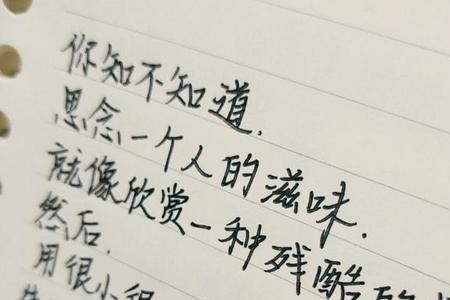 你知不知道,
思念一个人的滋味.
就像欣赏一种残酷的
然后.
用很小